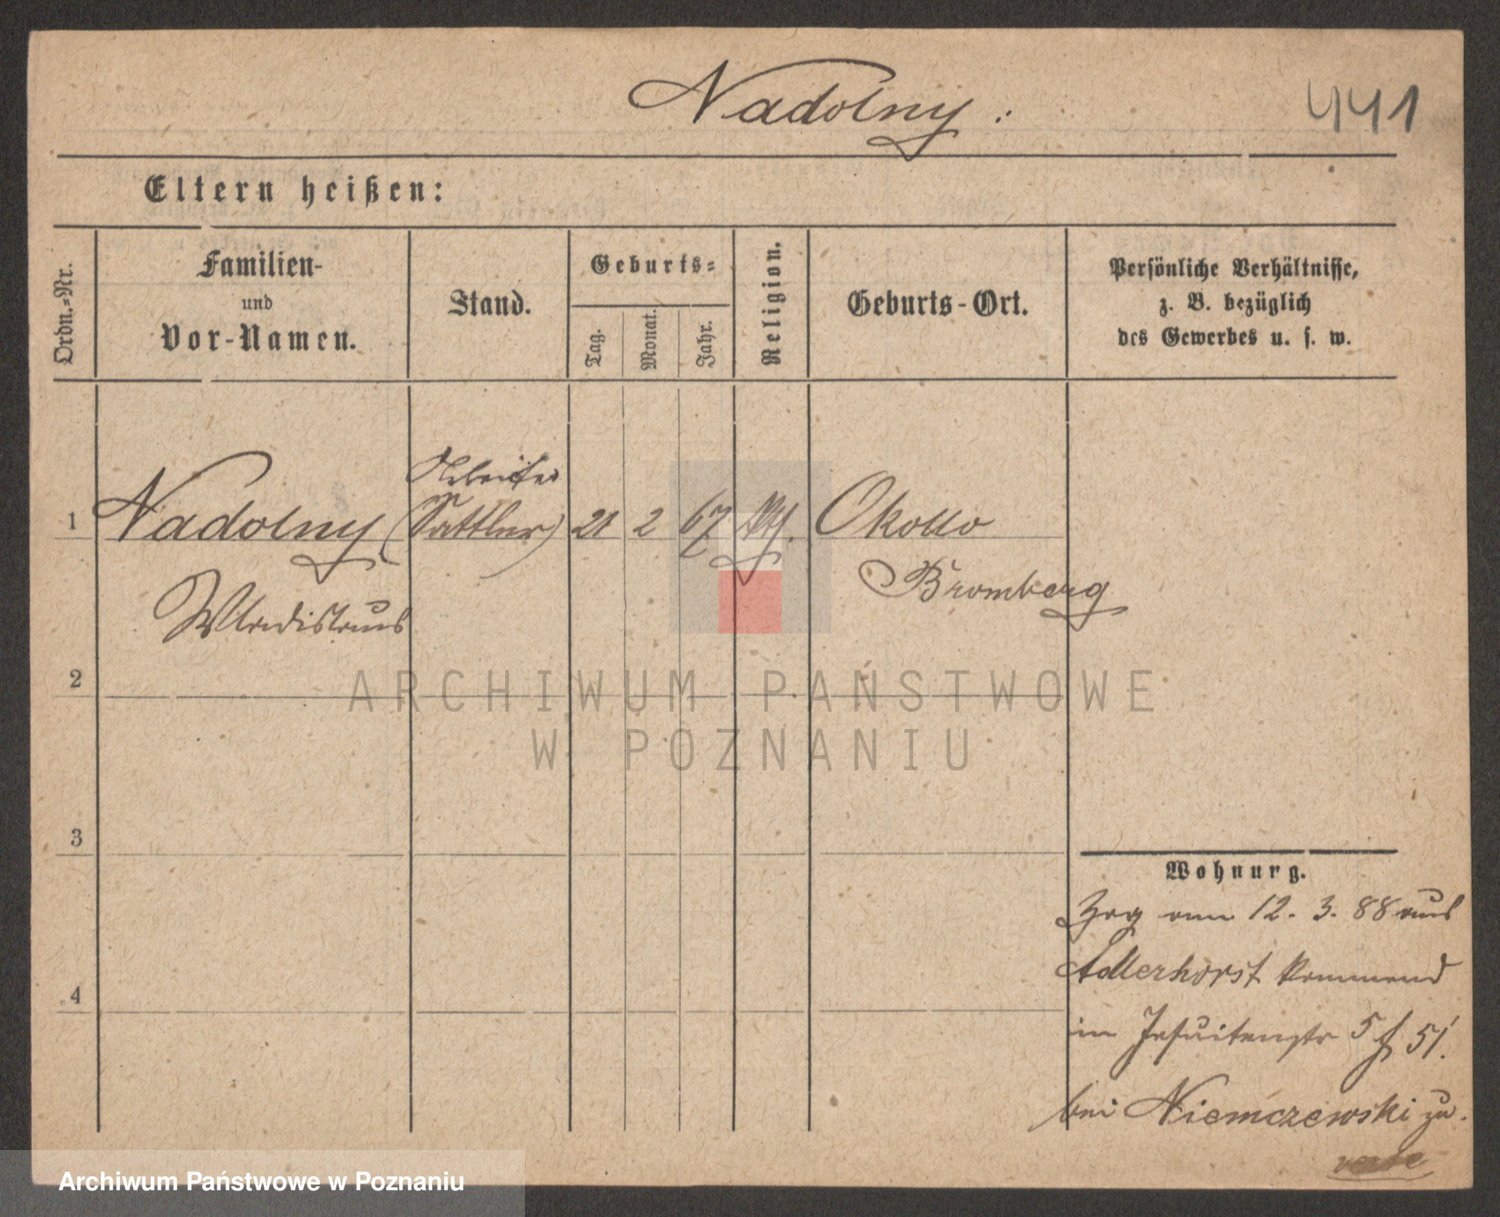 Nadolny.
441
Eltern heißen:
Ordn.-Nr.
Familien-
und
Vor-Namen.
Stand.
Geburts-
Tag.
Monat.
Jahr.
Religion.
Geburts-Ort.
Persönliche Verhältnisse,
z. B. bezüglich
des Gewerbes u. s. w.
Arbeiter
1 Nadolny (Sattler) 21 2 67 kth. Okollo
Bromberg
Wladislaus
2
ARCHIWUM PAŃSTWOWE
W POZNANIU
3
4
Wohnung.
Zog am 12. 3. 88 aus
Adlerhorst kommend
in Jesuitenstr 5 f 51.
bei Niemczewski zu.
Archiwum Państwowe w Poznaniu